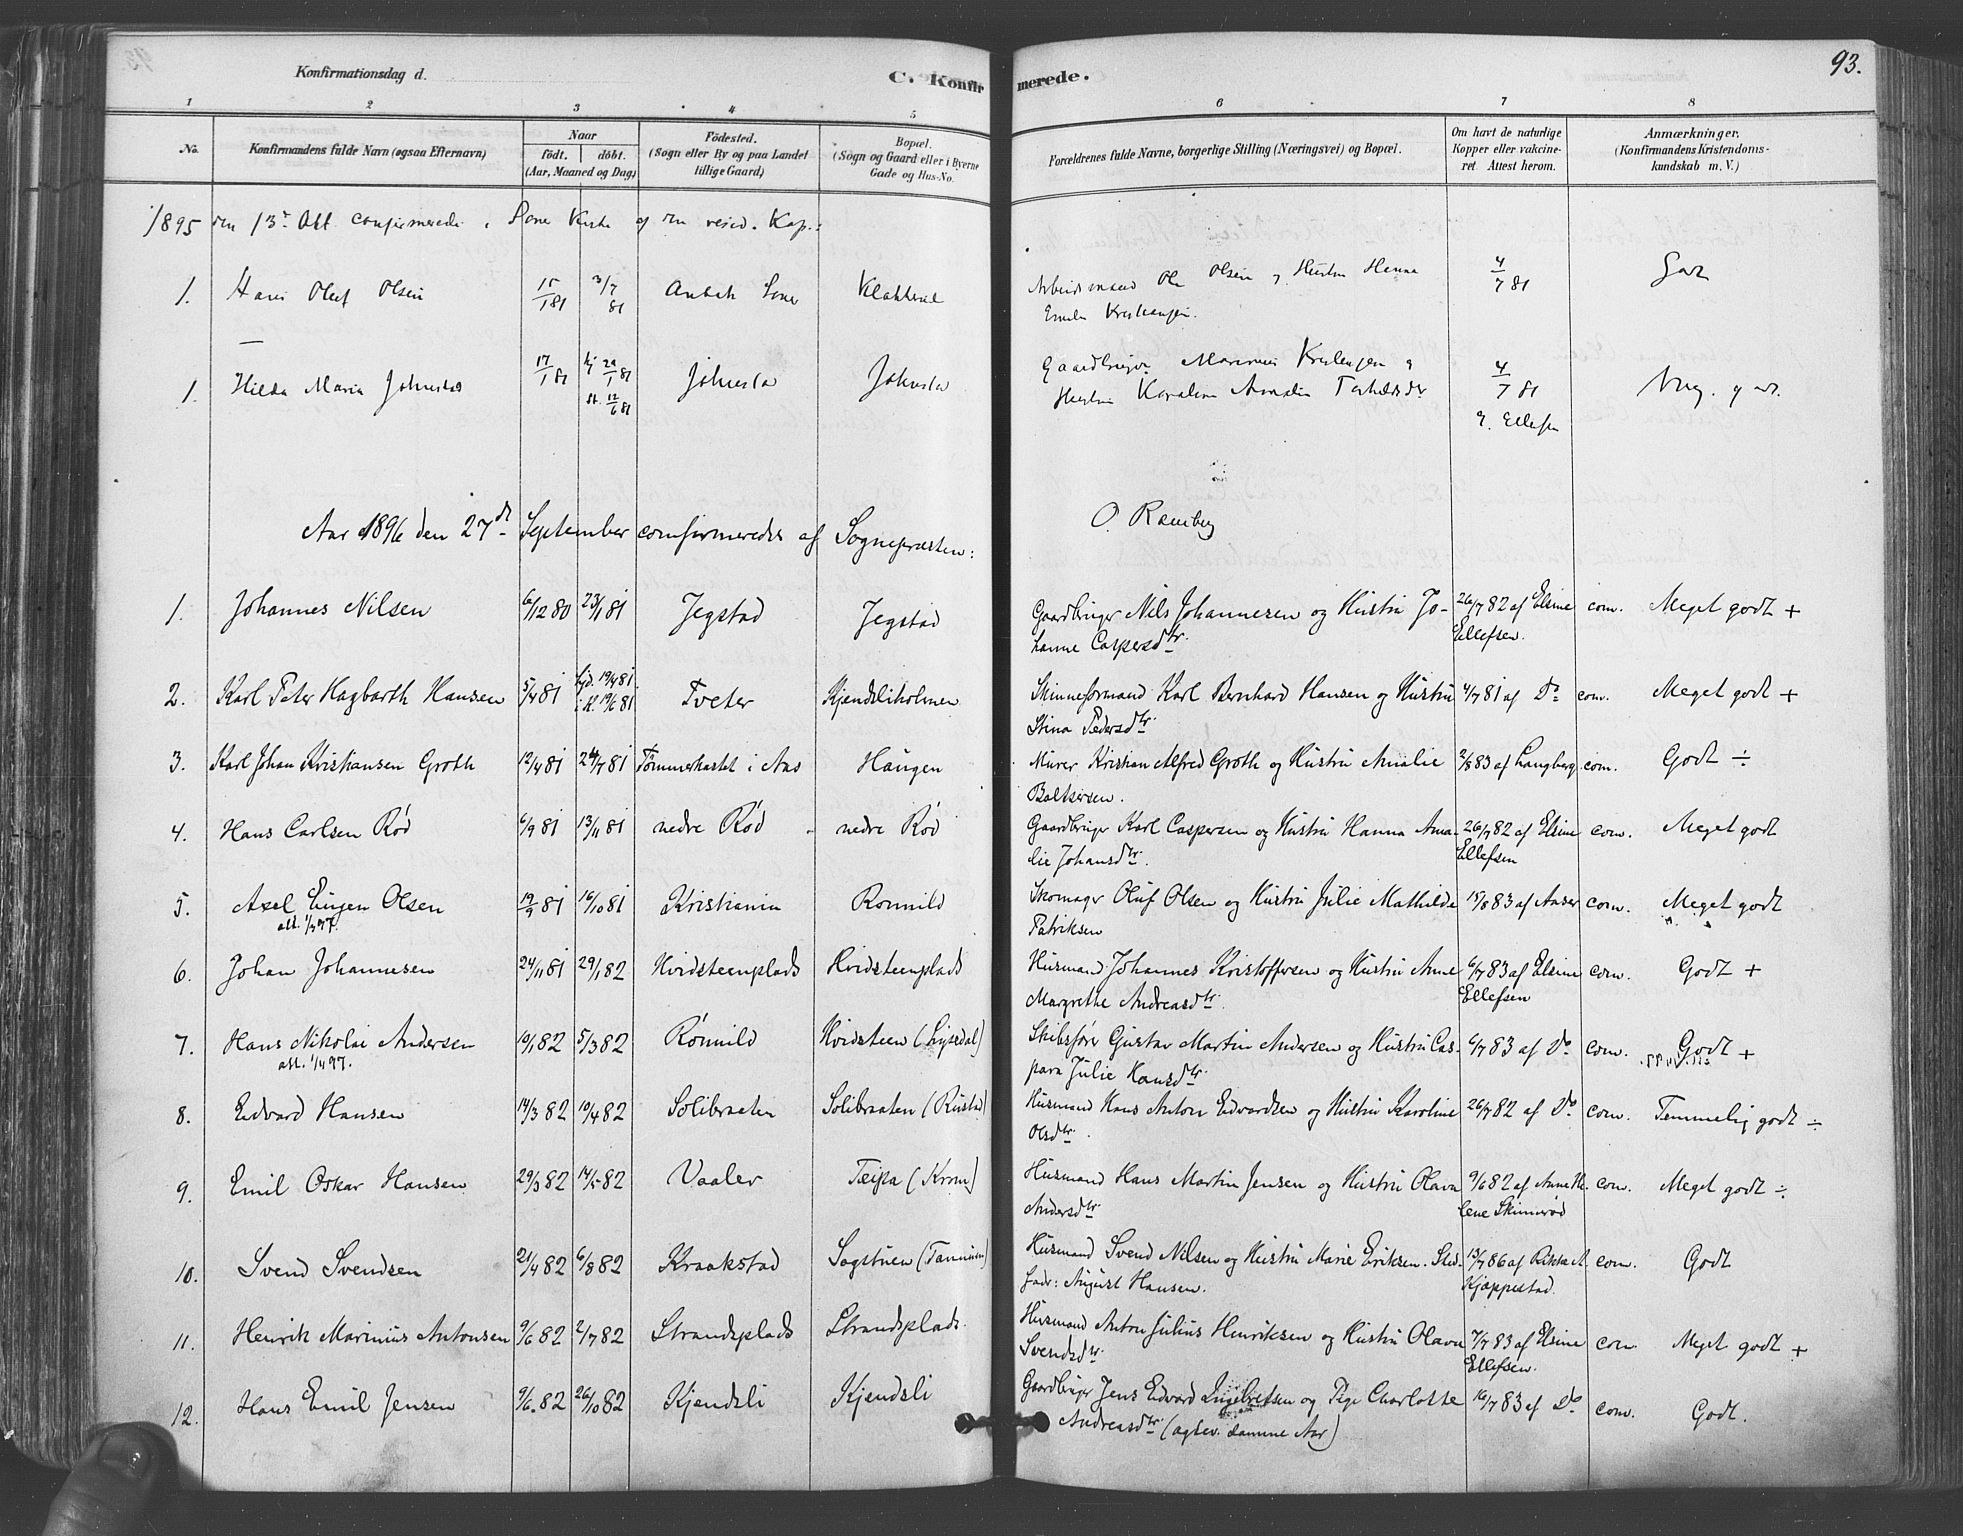 93.
Konfirmationsdag d.
C. Konfirmerede.
1 2 3 4 5 6 7 8
No.
Konfirmandens fulde Navn (ogsaa Efternavn)
Naar
födt. döbt.
(Aar, Maaned og Dag)
Födested.
(Sogn eller By og paa Landet
tillige Gaard)
Bopæl.
(Sogn og Gaard eller i Byerne
Gade og Hus-No.
Forældrenes fulde Navne, borgerlige Stilling (Næringsvei) og Bopæl.
Om havt de naturlige
Kopper eller vakcine-
ret. Attest herom.
Anmærkninger.
(Konfirmandens Kristendoms-
kundskab m. V.)
1895 den 13de Okt confirmerede i Soner Kirke af den resid. Kap.:
1. Hans Oluf Olsen 15/1 81 3/7 81 Soner Arbeidsmand Ole Olsen og Hustru Hanna 4/7 81 Godt
Emilie Kristiansen.
1. Hilda Maria Johnstad 17/1 81 29/1 81 Johnstad Johnstad Gaardbruger Marinius Kristensen og 4/7 81 Meg. godt.
12/6 81 Hustru Karoline Amalie E. Ellefsen
Aar 1896 den 27de September confirmeredes af Sognepræsten: O. Ramberg
1. Johannes Nilsen 6/12 80 23/1 81 Jegstad Jegstad Gaardbruger Nils Johannesen og Hustru Jo- 26/7 82 af Elsine com. Meget godt +
hanne Caspersdtr. Ellefsen.
2. Karl Peter Hagbarth Hansen 5/4 81 hjd. 19/4 81 Tveter Kjendsliholmen Skinneformand Karl Bernhard Hansen og Hustru 4/7 81 af Do com. Meget godt +
i K. 19/6 81 Stina Pedersdtr.
3. Karl Johan Kristiansen Groth 12/4 81 24/7 81 Tømmerkastet i Aas Haugen Murer Kristian Alfred Groth og Hustru Amalie 2/8 83 af Langberg com. Godt ÷
Baltsersen.
4. Hans Carlsen Rød 6/9 81 13/11 81 nedre Rød nedre Rød Gaardbruger Karl Caspersen og Hustru Hanna Ama- 26/7 82 af Elsine com. Meget godt
lie Johansdtr. Ellefsen
5. Axel Eugen Olsen 19/9 81 16/10 81 Kristiania Romnild Skomager Oluf Olsen og Hustru Julie Mathilde 15/8 83 af Aaser com. Meget godt
Patriksen
6. Johan Johannesen 24/11 81 29/1 82 Hvidsteenplads Hvidsteenplads Husmand Johannes Kristoffersen og Hustru Anne 6/7 83 af Elsine com. Godt +
Margrethe Andreasdtr. Ellefsen
7. Hans Nikolai Andersen 10/1 82 5/3 82 Rømnild Hvidsteen (Lysedal) Skibsfører Gustav Martin Andersen og Hustru Cas- 6/7 83 af Do com. Godt +
att. 1/4 97. para Julie Hansdtr
8. Edvard Hansen 14/3 82 10/4 82 Solibraaten Solibraaten (Rustad) Husmand Hans Anton Edvardsen og Hustru Karoline 26/7 82 af Do com. Temmelig godt ÷
Olsdtr.
9. Emil Oskar Hansen 29/3 82 14/5 82 Vaaler Teipa (Krom) Husmand Hans Martin Jensen og Hustru Olava 9/6 82 af Anne He- com. Meget godt ÷
Andersdtr. lene Skinnerød
10. Svend Svendsen 21/4 82 6/8 82 Kraakstad Sagstuen Husmand Svend Nilsen og Hustru Marie Eriksen. Sted- 13/7 86 af Rikka A. com. Godt
fadr: August Hansen. Kjoppestad.
11. Henrik Marinius Antonsen 9/6 82 2/7 82 Strandsplads Strandsplads Husmand Anton Julius Henriksen og Hustru Olava 7/7 83 af Elsine com Meget godt +
Svendsdtr. Ellefsen.
12. Hans Emil Jensen 9/6 82 26/10 82 Kjendsli Kjendsli Gaardbruger Jens Edvard Ingebretsen og Pige Charlotte 16/7 83 af Do com. Godt.
Andreasdtr (ægtev. samme Aar)